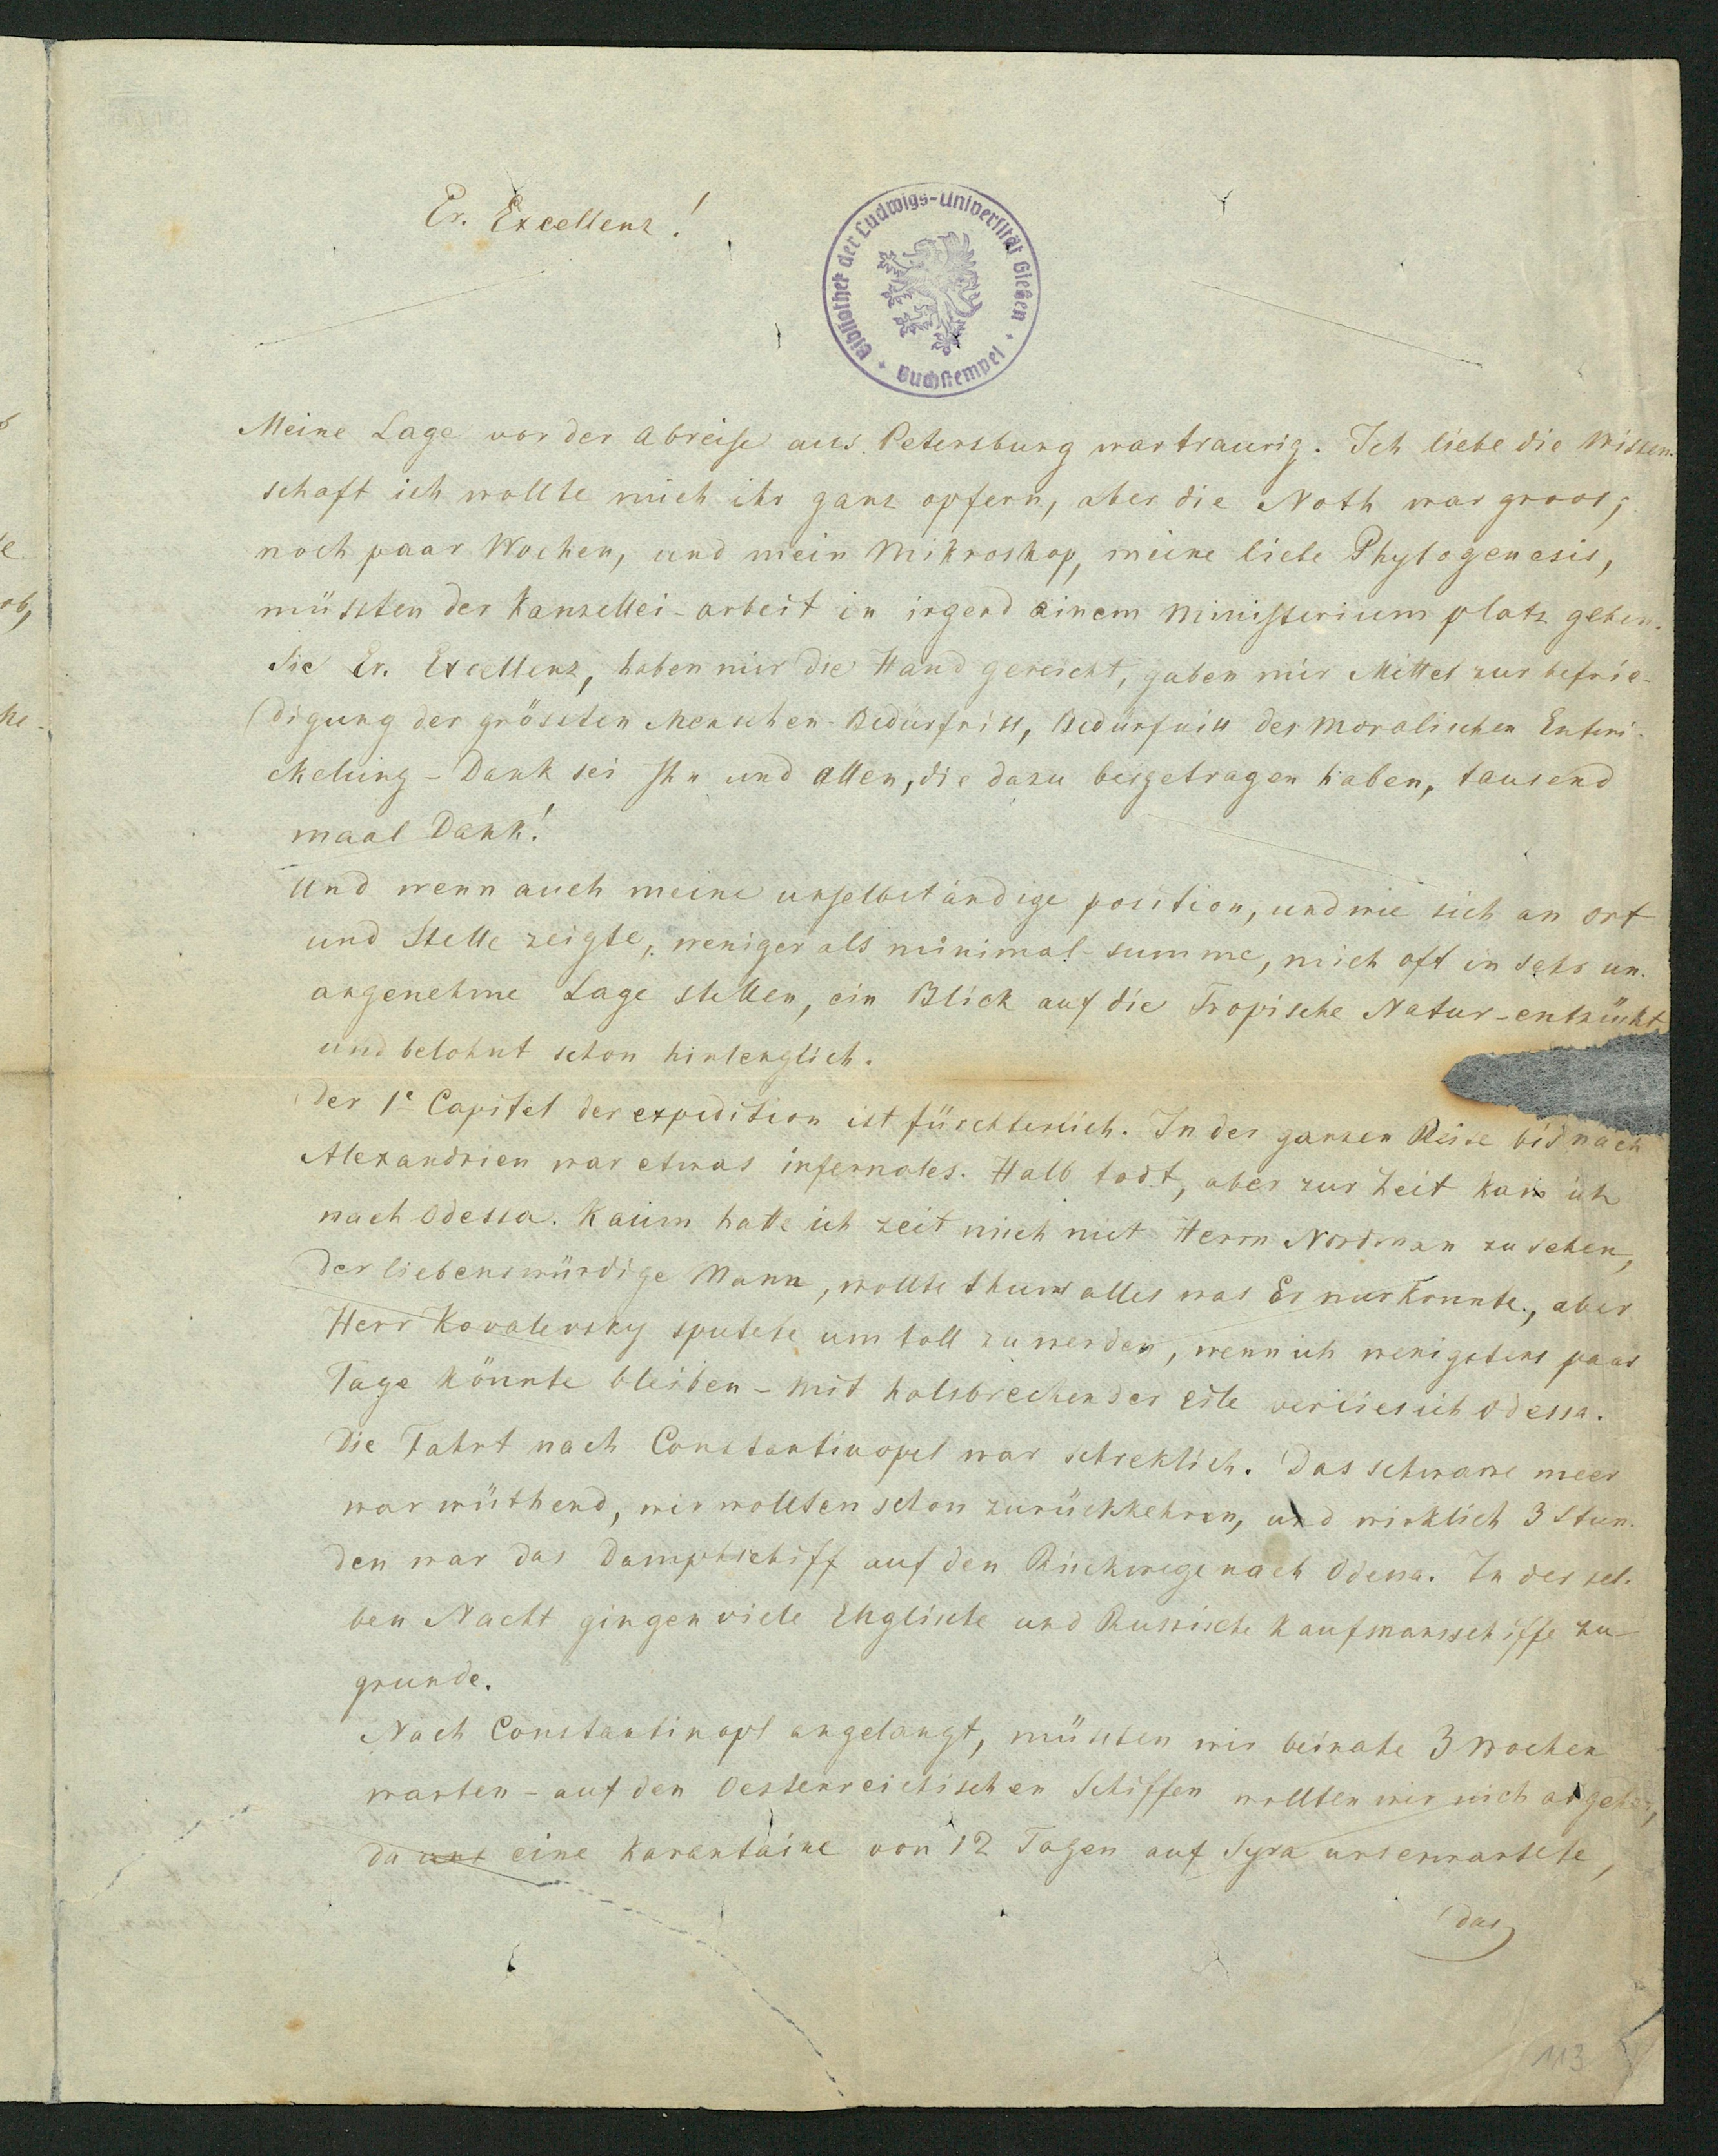 Er. Excellenz!
Bibliothek der Ludwigs-Universität Gießen
Buchstempel
Meine Lage vor der Abreise aus Petersburg war traurig. Ich liebe die Wissen-
schaft ich wollte mich ihr ganz opfern, aber die Noth war groos;
noch paar Wochen, und mein Mikroskop, meine liebe Phytogenesis,
müssten der Kanzellei-arbeit in irgend einem Ministerium platz geben.
Sie Er. Excellenz, haben mir die Hand gereicht, gaben mir Mittel zur befrie-
digung der grössten Menschen-Bedürfniss, Bedürfniss der moralischen Entwi-
ckelung – Dank sei Ihn und allen, die dazu beigetragen haben, tausend
maal Dank!
Und wenn auch meine unselbständige position, und wie sich an ort
und Stelle zeigte, weniger als minimal-summe, mich oft in sehr un-
angenehme Lage stellen, ein Blick auf die Tropische Natur-entzückt
und belohnt schon hinlenglich.
Der 1e Capitel der expedition ist fürchterlich. In der ganzen Reise bis nach
Alexandrien war etwas infernales. Halb todt, aber zur Zeit kam ich
nach Odessa. Kaum hatte ich zeit mich mit Herrn Nordman zu sehen,
der liebenswürdige Mann, wollte thun alles was Er nur konnte, aber
Herr Kovalevsky sputete um toll zu werden, wenn ich wenigstens paar
Tage könnte bleiben – mit halsbrechender eile verlies ich Odessa.
Die Fahrt nach Constantinopel war schreklich. Das schwarze meer
war wüthend, wir wollten schon zurückkehren, und wirklich 3 Stun-
den war das Dampfschiff auf den Rückwege nach Odessa. In der sel-
ben Nacht gingen viele Englische und Russische Kaufmansschiffe zu
grunde.
Nach Constantinopl angelangt, müssten wir beinahe 3 Wochen
warten – auf den Oesterreichischen Schiffen wollten wir nich abgehen,
da uns eine Karantaine von 12 Tagen auf Syra uns erwartete,
das
113